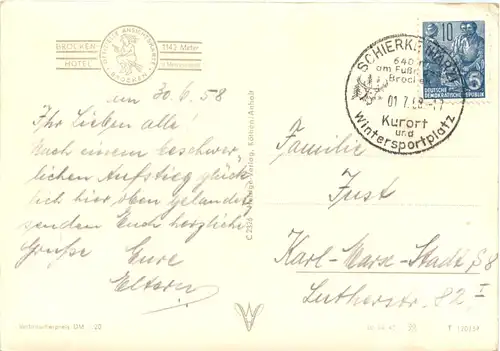 BROCKEN-
HOTEL
OFFIZIELLE ANSICHTSKARTE
BROCKEN
1142 Meter
ü. Meeresspiegel
am 30.6.58
Ihr Lieben alle!
Nach einem beschwer-
lichen Aufstieg glück-
lich hier oben gelandet
senden Euch herzliche
Grüße Eure
Eltern
Verlag, Köthen/Anhalt
SCHIERKE (HARZ)
640 m
am Fuße
Brocken
01.7.58-17
Kurort
und
Wintersportplatz
10
DEUTSCHE
DEMOKRATISCHE REPUBLIK
5
Familie
Just
Karl-Marx-Stadt S 8
Lutherstr. 82 I
Verbraucherpreis DM -.20